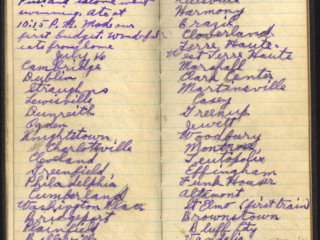 swimming. Ate at
10:15 P.M. Made our
first budget. Wonderful
eats from home
July 16
Cambridge
Dublin
Straughns
Lewisville
Dunreith
Ogden
Knightstown
Charlottsville
Cleveland
Greenfield
Philadelphia
Cumberland
Washington Place
Bridgeport
Plainfield
Belleville
Reelsville
Harmony
Brazil
Cloverland
Terre Haute
West Terre Haute
Marshall
Clark Center
Martinsville
Casey
Greenup
Jewett
Woodbury
Montrose
Teutopolis
Effingham
Funk Houser
Altamont
St Elmo (first train)
Brownstown
Bluff City
Vandalia